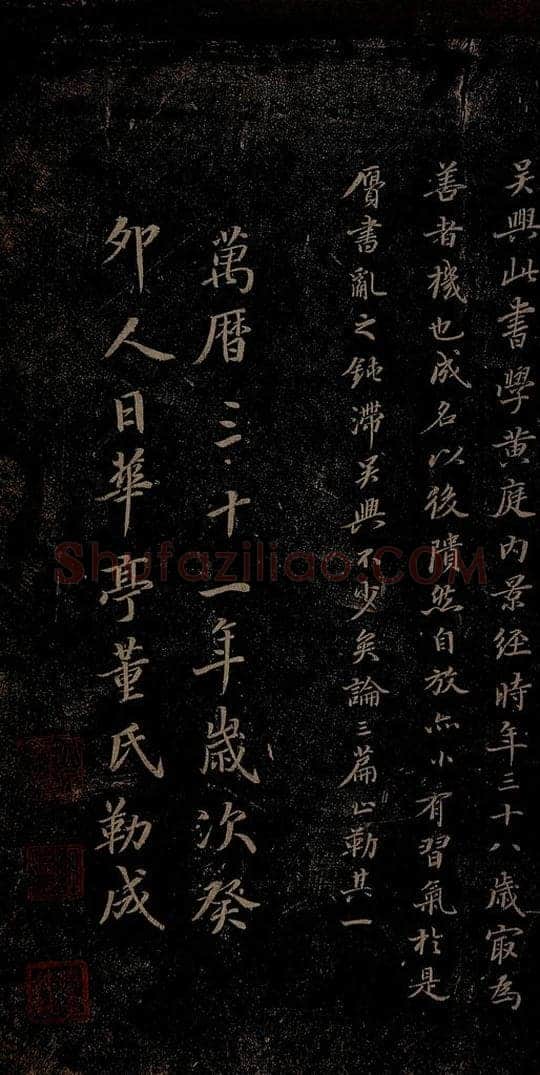 吴興此書學黄庭内景經時年三十八歲㝡為
善者機也成名以後隤然自放亦小有習氣於是
贋書亂之鈍滯吴興不少矣論三篇止勒其一
萬曆三十一年歲次癸
卯人日華亭董氏勒成
Shufaziliao.com